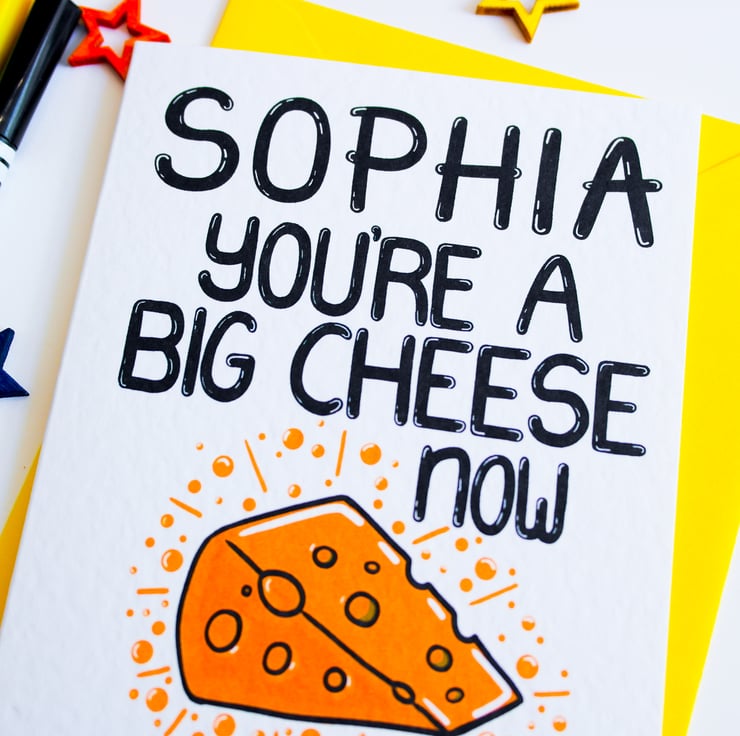 SOPHIA
YOU'RE A
BIG CHEESE
now